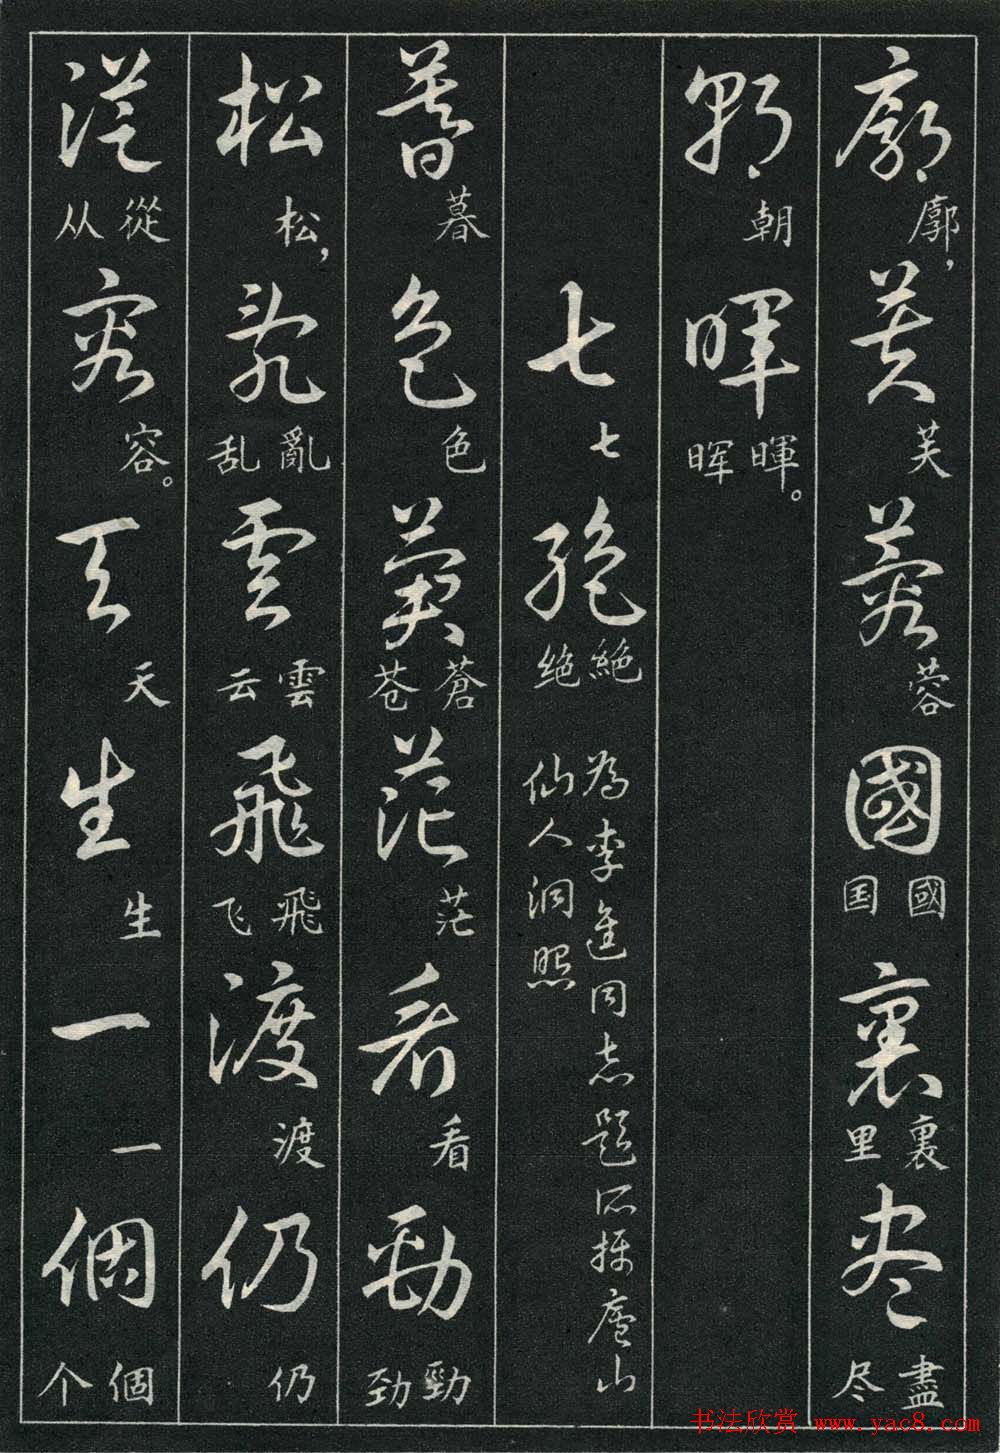 廓廓，芙芙蓉蓉國國国裏裏里盡盡尽
朝朝暉暉晖。
七七絶絶绝
為李進同志題所攝廬山
仙人洞照
暮暮色色蒼蒼苍茫茫看看勁勁劲
松松，亂亂乱雲雲云飛飛飞渡渡仍仍
從從从容容。天天生生一一個個个
书法欣赏 www.yac8.com